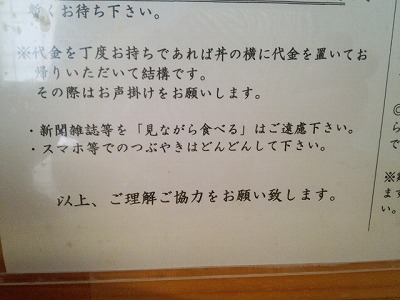 暫くお待ち下さい。
※代金を丁度お持ちであれば丼の横に代金を置いてお
帰りいただいて結構です。
その際はお声掛けをお願いします。
・新聞雑誌等を「見ながら食べる」はご遠慮下さい。
・スマホ等でのつぶやきはどんどんして下さい。
以上、ご理解ご協力をお願い致します。